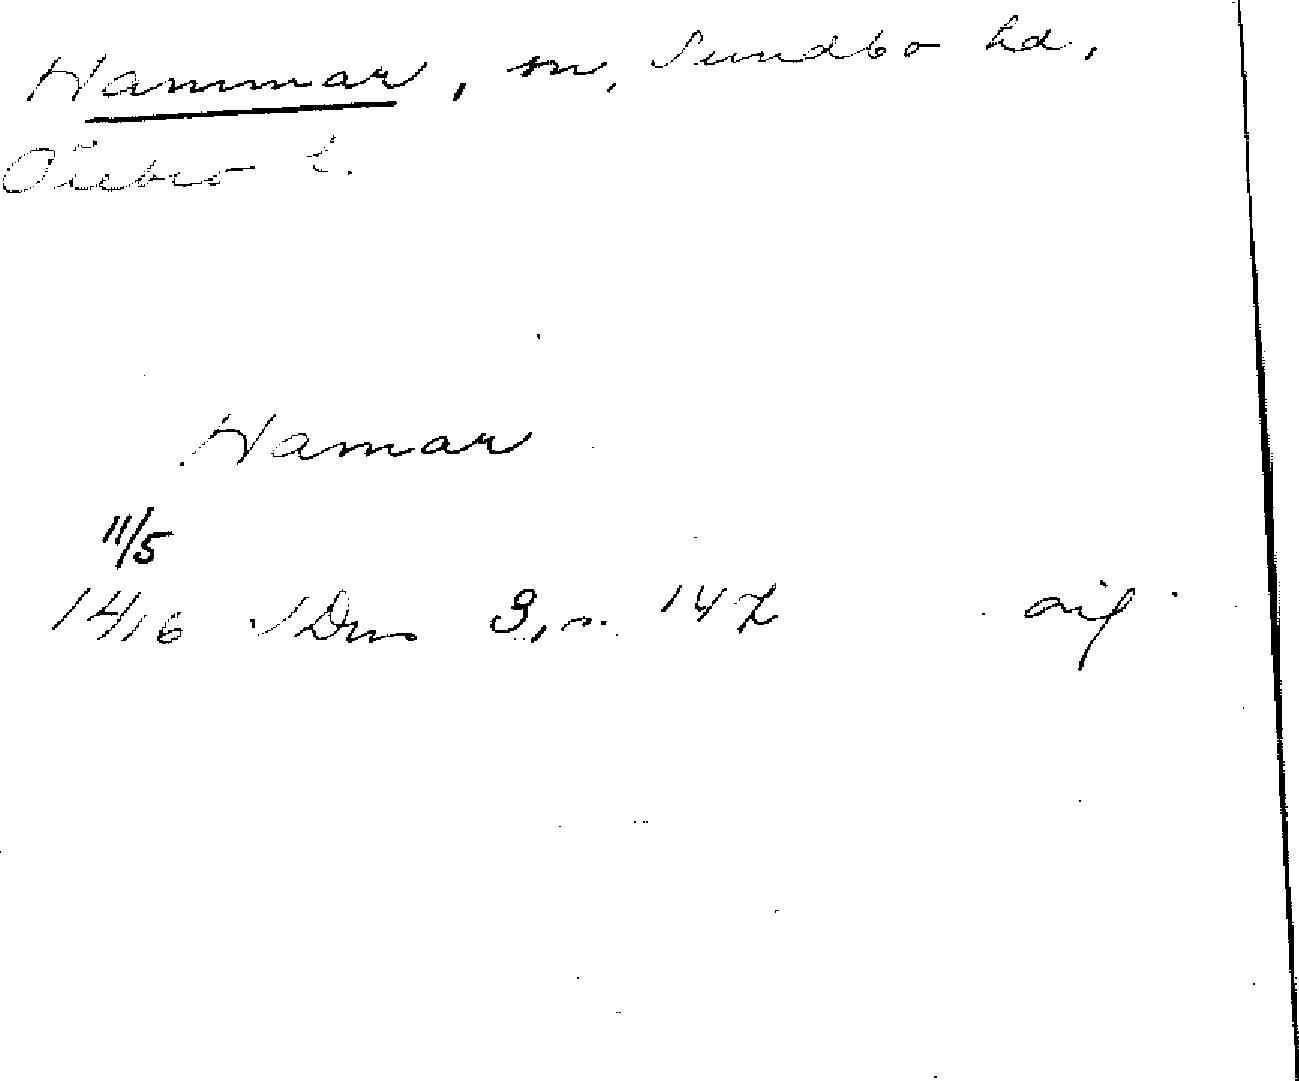 Hammar, sn, Sundbo hd,
Örebro l.
Hamar
11/5
1416 SDns 3, s. 147 avs